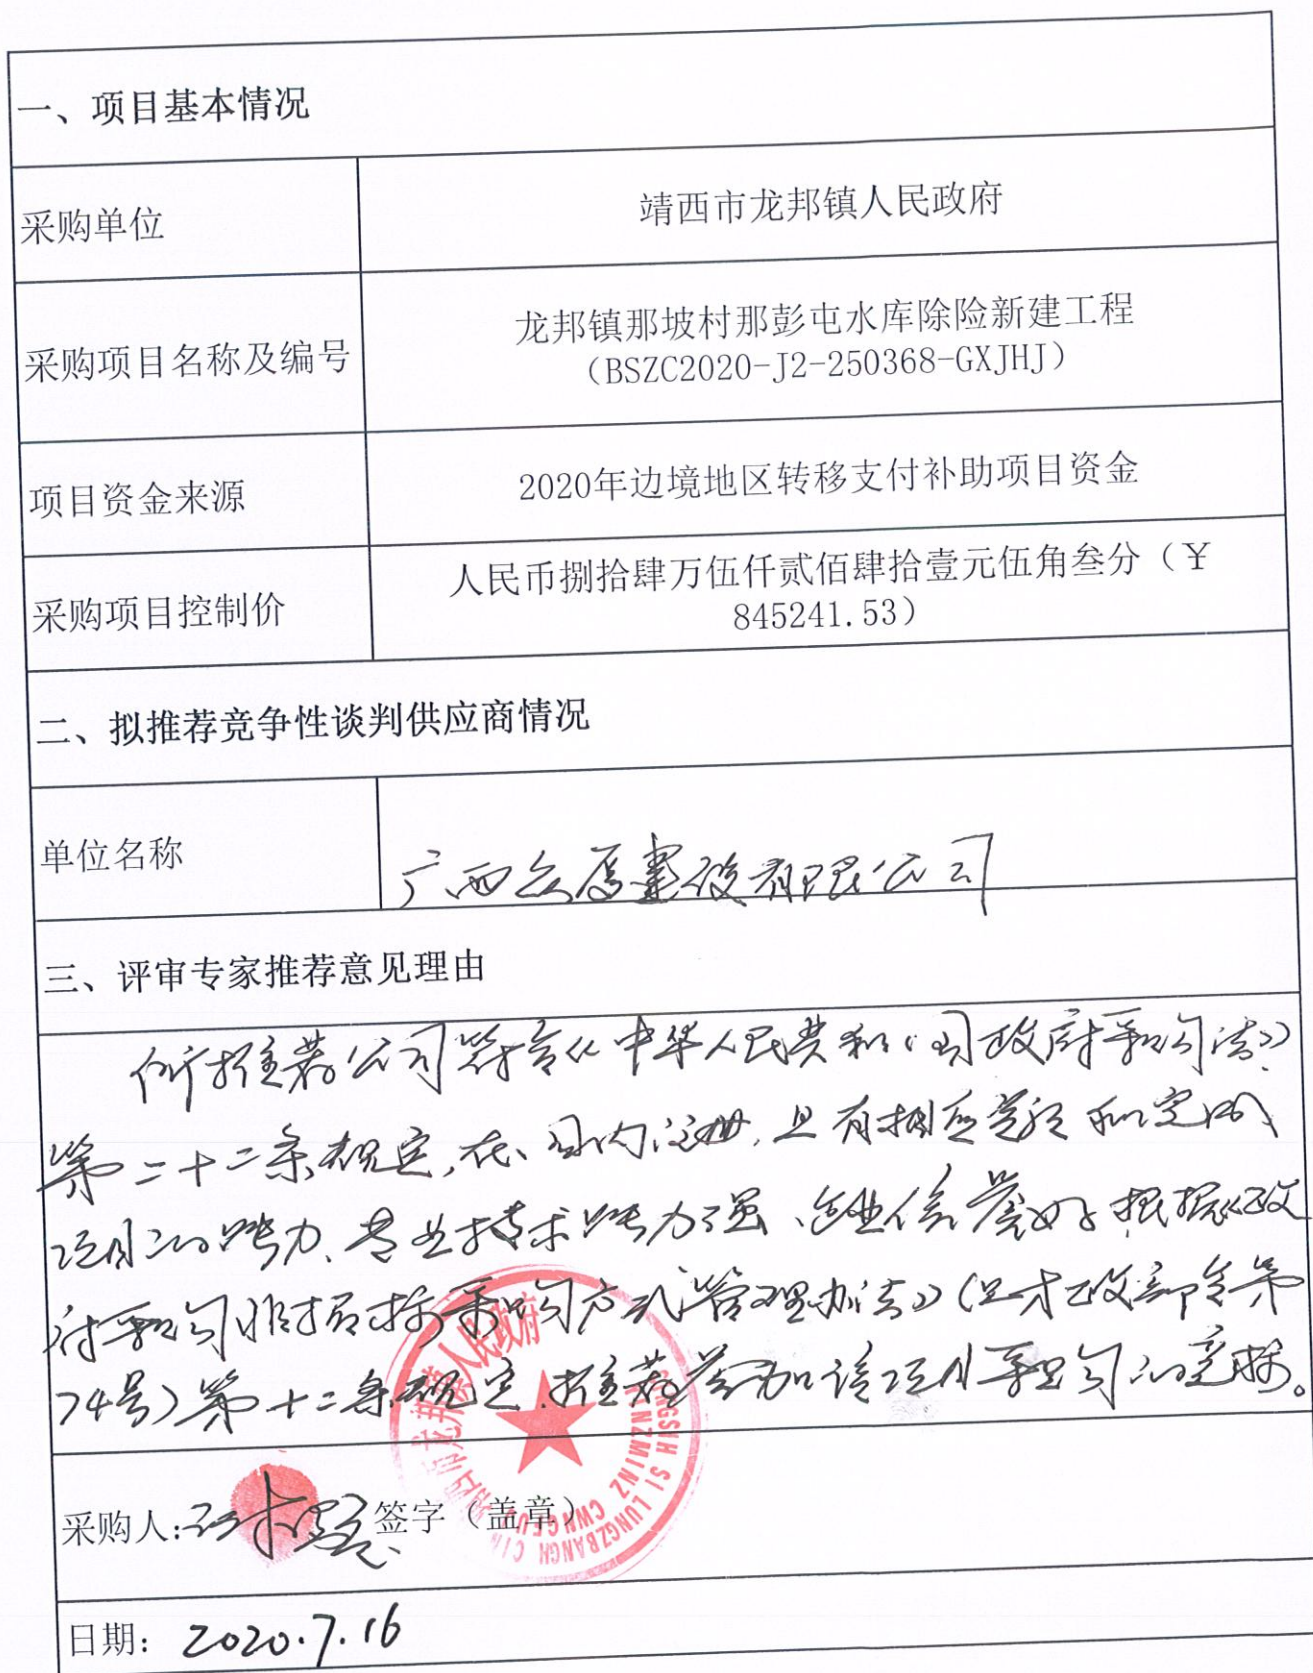 一、项目基本情况
采购单位
靖西市龙邦镇人民政府
采购项目名称及编号
龙邦镇那坡村那彭屯水库除险新建工程
（BSZC2020-J2-250368-GXJHJ）
项目资金来源
2020年边境地区转移支付补助项目资金
采购项目控制价
人民币捌拾肆万伍仟贰佰肆拾壹元伍角叁分（￥
845241.53）
二、拟推荐竞争性谈判供应商情况
单位名称
广西众厚建设有限公司
三、评审专家推荐意见理由
所推荐公司符合《中华人民共和国政府采购法》
第二十二条规定,在国内注册,且有相应资质和完成
项目的能力、专业技术能力强、企业信誉好,根据《政
府采购非招标采购方式管理办法》(财政部令第
74号)第十二条规定,推荐参加该项目采购的竞标。
采购人: 签字（盖章）
靖西市龙邦镇人民政府
CINGSIH SI LUNGZBANGH CIN YINZMINZ CWNGFUJ
日期: 2020.7.16